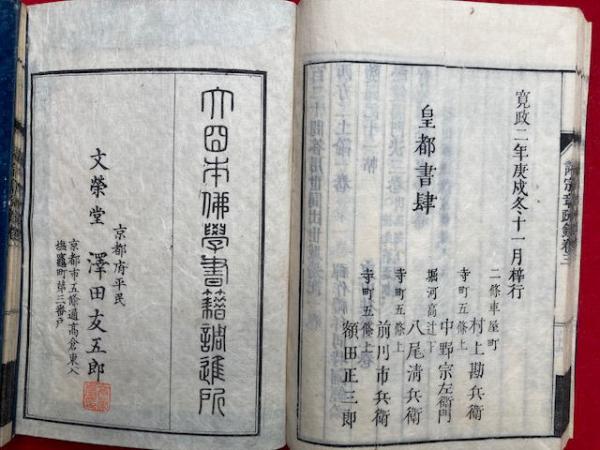 諸宗章疏録卷三
寛政二年庚戌冬十一月梓行
皇都書肆
二條車屋町
村上勘兵衛
寺町五條上
中野宗左衛門
堀河高辻下
八尾清兵衛
寺町五條上
前川市兵衛
寺町五條上
額田正三郎
大日本佛學書籍調進所
京都府平民
文榮堂 澤田友五郎
京都市五條通高倉東入
塩竈町第三番戸